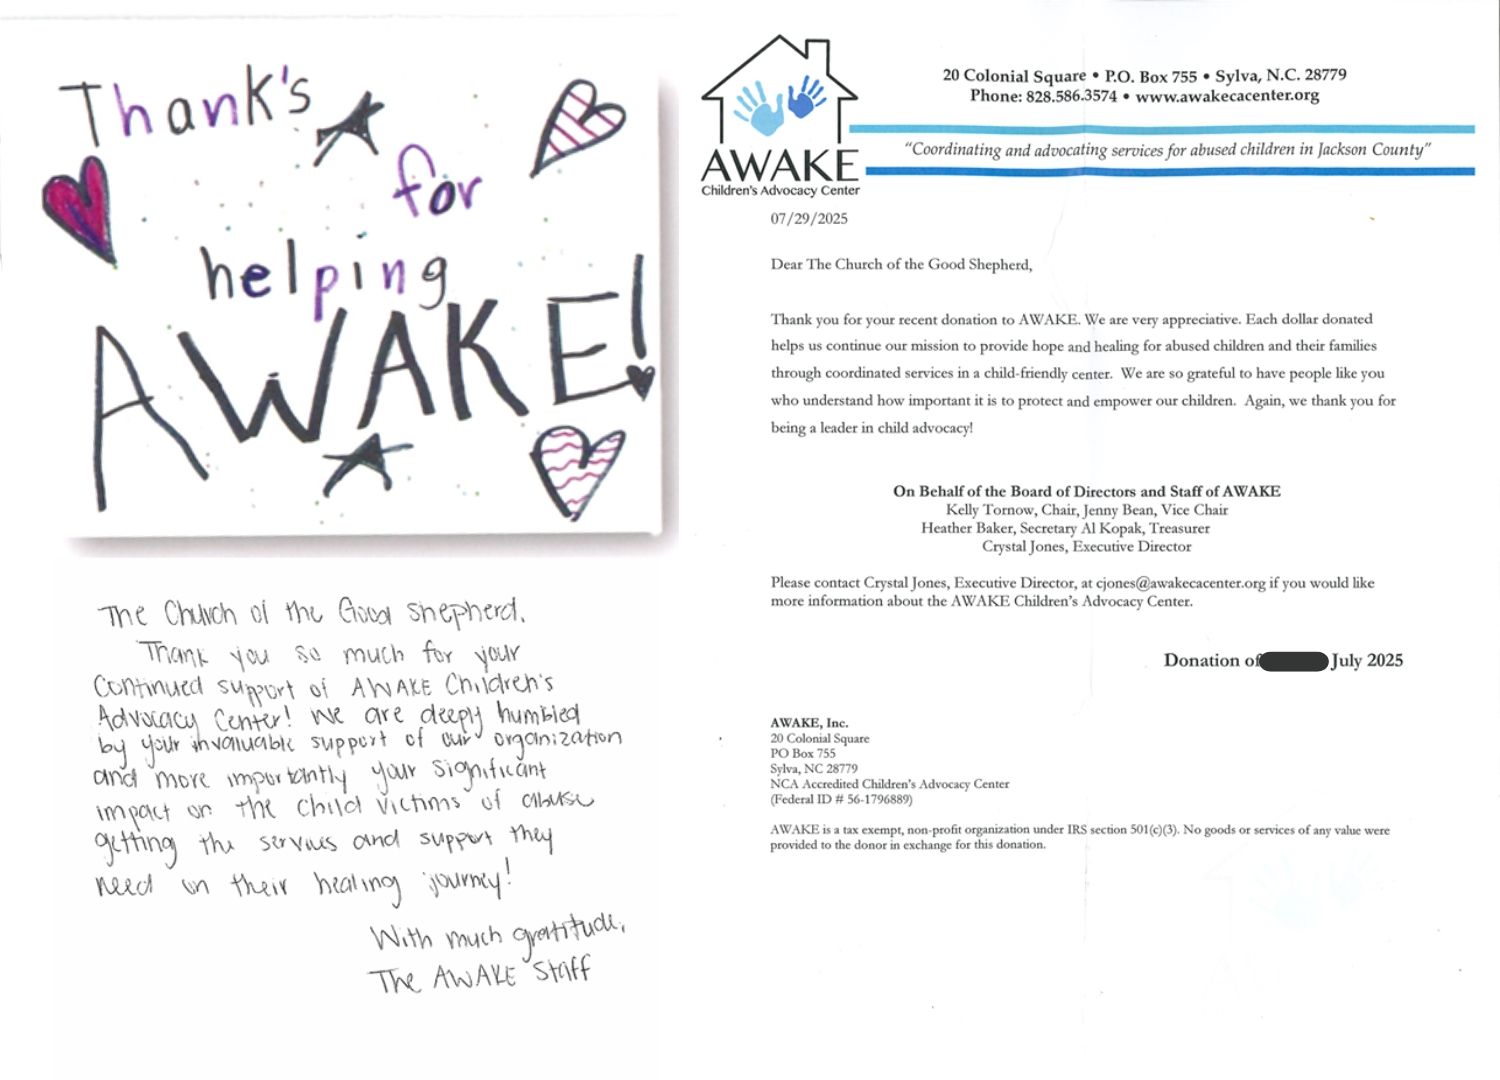 Thank's
for
helping
AWAKE!
The Church of the Good Shepherd,
Thank you so much for your
Continued support of AWAKE Children's
Advocacy Center! We are deeply humbled
by your invaluable support of our organization
and more importantly your significant
impact on the child victims of abuse
getting the services and support they
need on their healing journey!
With much gratitude,
The AWAKE Staff
AWAKE
Children's Advocacy Center
20 Colonial Square • P.O. Box 755 • Sylva, N.C. 28779
Phone: 828.586.3574 • www.awakecacenter.org
"Coordinating and advocating services for abused children in Jackson County"
07/29/2025
Dear The Church of the Good Shepherd,
Thank you for your recent donation to AWAKE. We are very appreciative. Each dollar donated
helps us continue our mission to provide hope and healing for abused children and their families
through coordinated services in a child-friendly center. We are so grateful to have people like you
who understand how important it is to protect and empower our children. Again, we thank you for
being a leader in child advocacy!
On Behalf of the Board of Directors and Staff of AWAKE
Kelly Tornow, Chair, Jenny Bean, Vice Chair
Heather Baker, Secretary Al Kopak, Treasurer
Crystal Jones, Executive Director
Please contact Crystal Jones, Executive Director, at cjones@awakecacenter.org if you would like
more information about the AWAKE Children's Advocacy Center.
Donation of July 2025
AWAKE, Inc.
20 Colonial Square
PO Box 755
Sylva, NC 28779
NCA Accredited Children's Advocacy Center
(Federal ID # 56-1796889)
AWAKE is a tax exempt, non-profit organization under IRS section 501(c)(3). No goods or services of any value were
provided to the donor in exchange for this donation.